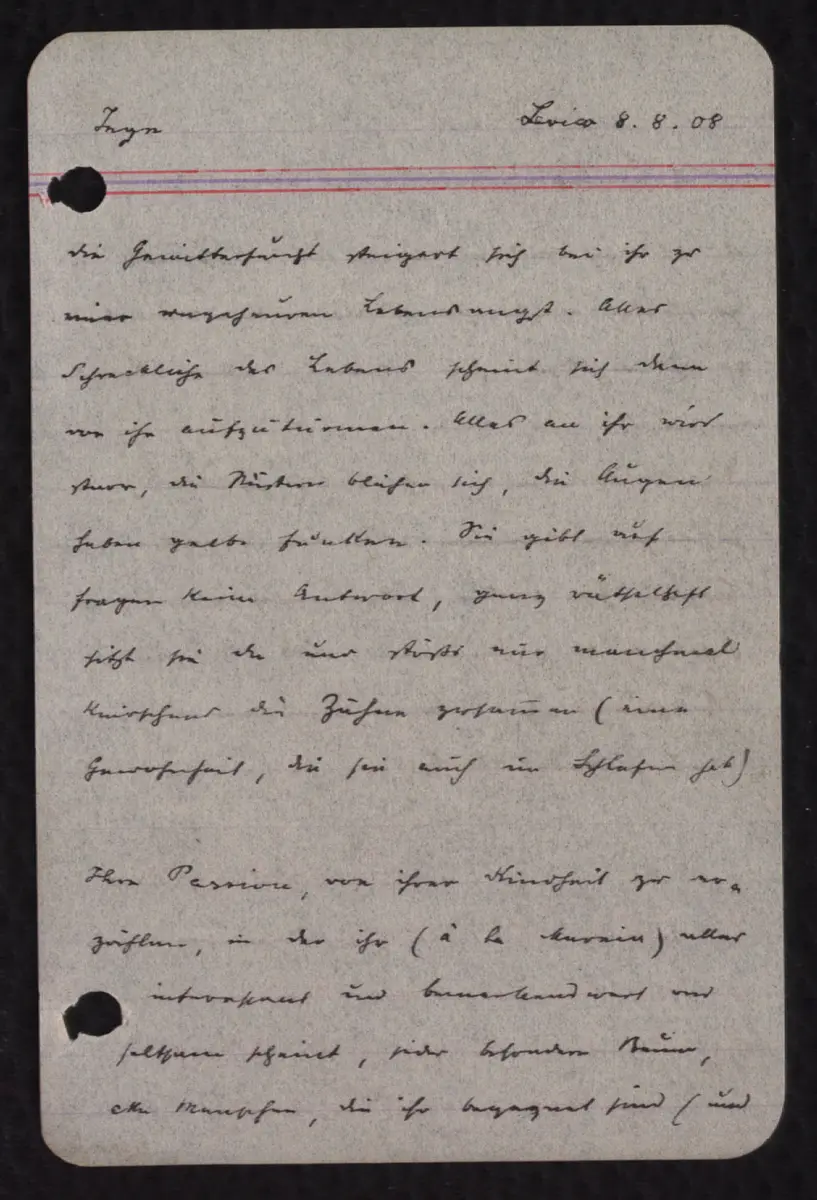 Inge Levico 8. 8. 08
die Gewitterfurcht steigert sich bei ihr zu
einer ungeheuren Lebensangst. Alles
Schreckliche des Lebens scheint sich dann
vor ihr aufzutürmen. Alles an ihr wird
starr, die Nüstern blähen sich, die Augen
haben gelbe Funken. Sie gibt auf
Fragen keine Antwort, ganz rätselhaft
sitzt sie da und stößt nur manchmal
knirschend die Zähne zusammen (eine
Gewohnheit, die sie auch im Schlafen hat)
Ihre Passion, von ihrer Kindheit zu er-
zählen, in der ihr (à la) alles
interessant und bemerkenswert und
seltsam scheint, jeder besondere Baum,
alle Menschen, die ihr begegnet sind (und